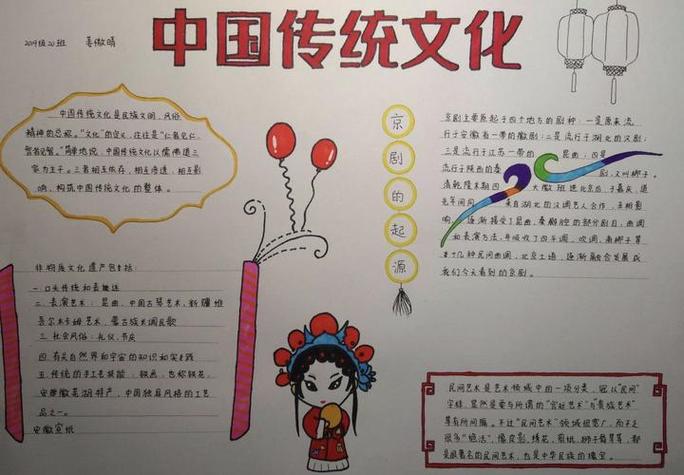 中国传统文化
2019级20班 姜傲晴
中国传统文化是民族文明，风俗
精神的总称。"文化"的定义，往往是"仁者见仁，
智者见智。"简单地说，中国传统文化以儒佛道三
家为主干。三者相互依存，相互渗透，相互影
响，构筑中国传统文化的整体。
非物质文化遗产包括：
一.口头传统和表述
二.表演艺术：昆曲，中国古琴艺术，新疆维
吾尔木卡姆艺术，蒙古族长调民歌
三.社会风俗：礼仪，节庆
四.有关自然界和宇宙的知识和实践
五.传统的手工艺技能：铁画，也称铁花，
安徽芜湖特产，中国独具风格的工艺
品之一。
安徽宣纸
京剧的起源
京剧主要原起于四个地方的剧种：一是原来流
行于安徽省一带的徽剧；二是流行于湖北的汉剧；
三是流行于江苏一带的昆曲；四是
流行于陕西的秦剧，又叫梆子。
清乾隆末期四大徽班进北京后，于嘉庆，道
光年间同来自湖北的汉调艺人合作，互相影
响，逐渐接受了昆曲，秦腔的部分剧目，曲调
和表演方法，并吸收了四平调，吹调，南梆子等
十几种民间曲调，北京土语，逐渐融合发展成
我们今天看到的京剧。
民间艺术是艺术领域中的一项分类，冠以"民间"
字样，显然是要与所谓的"宫廷艺术"与"贵族艺术"
等有所间隔。不过"民间艺术"领域相宽广，而不乏
很多"绝活"，像皮影，绣花，剪纸，狮子舞等等，都
是很著名的民间艺术，也是中华民族的瑰宝。